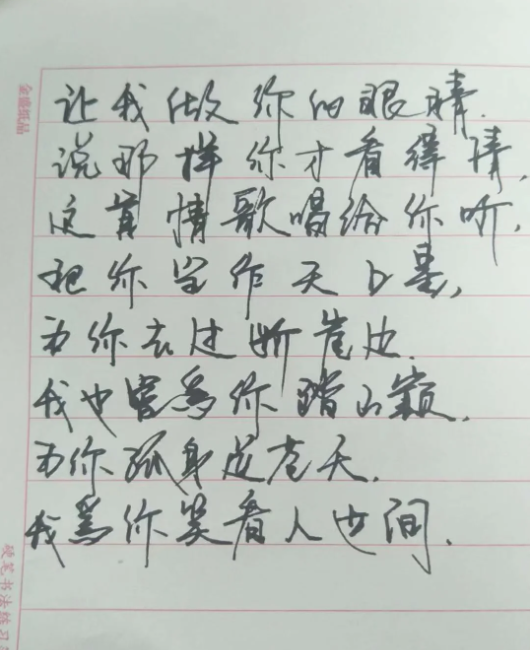 金盛纸品
让我做你的眼睛.
说那样你才看得清,
这首情歌唱给你听,
把你当作天上星,
为你去过断崖边.
我也曾为你踏山巅.
为你孤身度苍天.
我为你笑看人世间.
硬笔书法练习